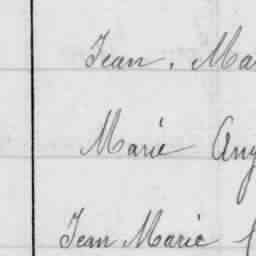 Jean. Ma
Marie Ang
Jean Marie